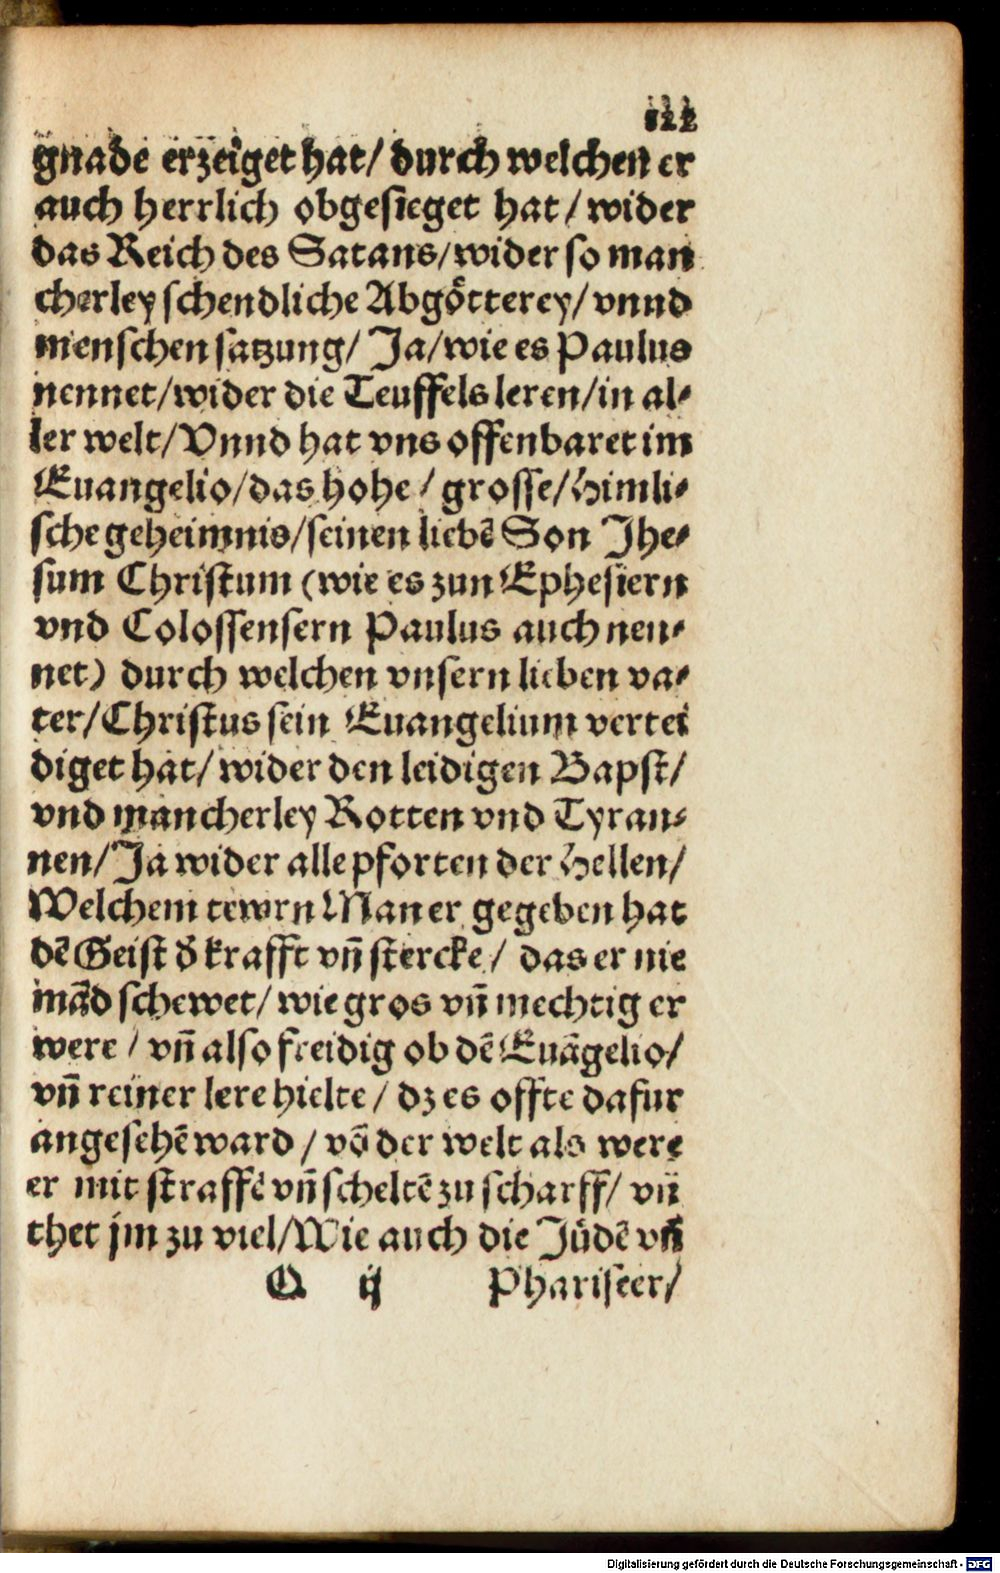 122
gnade erzeiget hat/ durch welchen er
auch herrlich obgesieget hat / wider
das Reich des Satans/wider so man
cherley schendliche Abgötterey/ vnnd
menschen satzung/ Ja/wie es Paulus
nennet/wider die Teuffels leren/in al⸗
ler welt/Vnnd hat vns offenbaret im
Euangelio/das hohe / grosse/Himli⸗
sche geheimnis/seinen liebẽ Son Jhe⸗
sum Christum (wie es zun Ephesiern
vnd Colossensern Paulus auch nen⸗
net) durch welchen vnsern lieben va⸗
ter/Christus sein Euangelium vertei
diget hat/ wider den leidigen Bapst/
vnd mancherley Rotten vnd Tyran⸗
nen/Ja wider alle pforten der Hellen/
Welchem tewrn Man er gegeben hat
dẽ Geist d̕ krafft vñ stercke / das er nie
mãd schewet/ wie gros vñ mechtig er
were / vñ also freidig ob dẽ Euãgelio/
vñ reiner lere hielte / dz es offte dafur
angesehẽ ward / võ der welt als were
er mit straffẽ vñ scheltẽ zu scharff/ vñ
thet jm zu viel/Wie auch die Jüdẽ vñ
Q ij Phariseer/
Digitalisierung gefördert durch die Deutsche Forschungsgemeinschaft - DFG